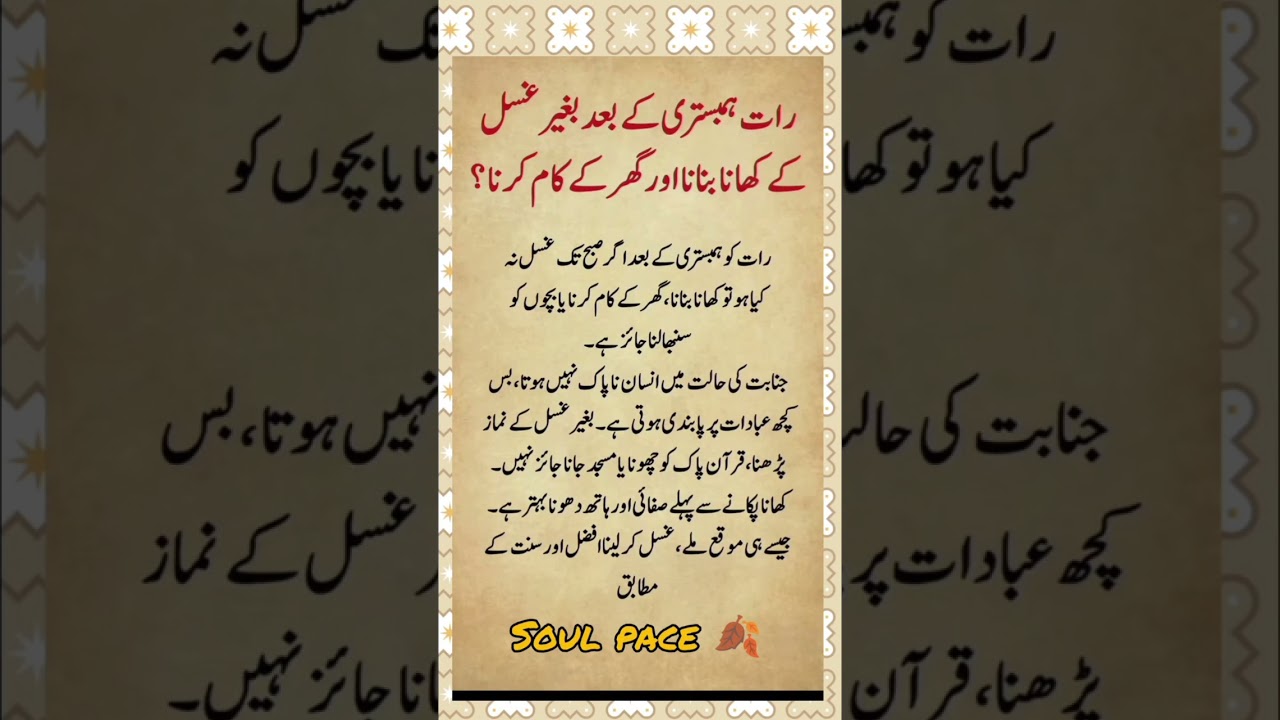 رات ہمبستری کے بعد بغیر غسل
کے کھانا بنانا اور گھر کے کام کرنا؟
رات کو ہمبستری کے بعد اگر صبح تک غسل نہ
کیا ہو تو کھانا بنانا، گھر کے کام کرنا یا بچوں کو
سنبھالنا جائز ہے۔
جنابت کی حالت میں انسان ناپاک نہیں ہوتا، بس
کچھ عبادات پر پابندی ہوتی ہے۔ بغیر غسل کے نماز
پڑھنا، قرآن پاک کو چھونا یا مسجد جانا جائز نہیں۔
کھانا پکانے سے پہلے صفائی اور ہاتھ دھونا بہتر ہے۔
جیسے ہی موقع ملے، غسل کر لینا افضل اور سنت کے
مطابق
SOUL PACE